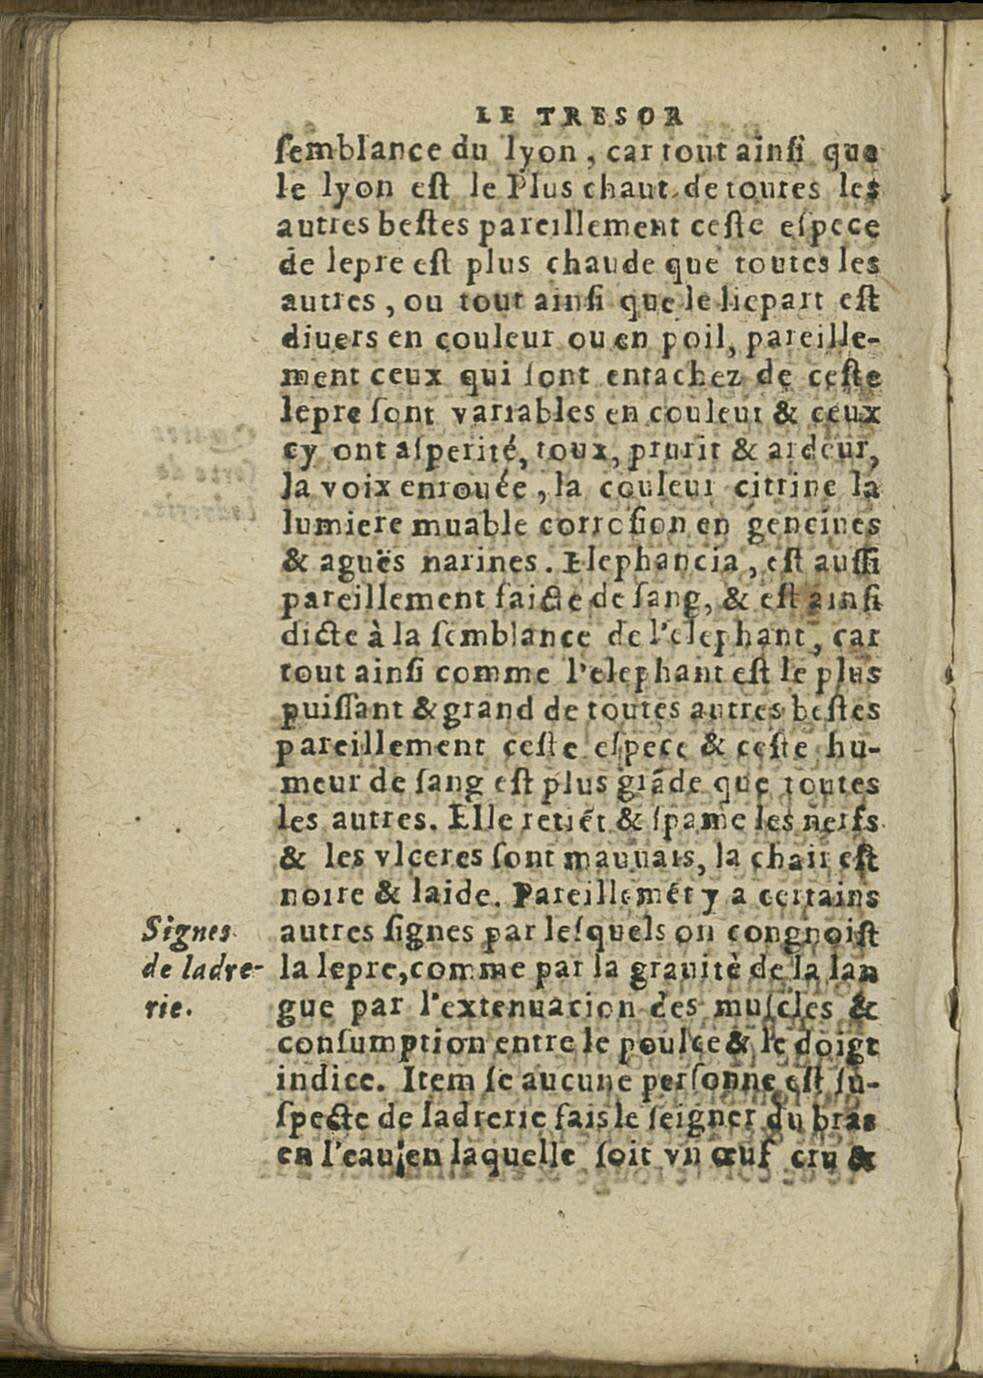 LE TRESOR
ſemblance du lyon, car tout ainſi que
le lyon eſt le Plus chaut de toutes les
autres beſtes pareillement ceſte eſpece
de lepre eſt plus chaude que toutes les
autres, ou tout ainſi que le liepart eſt
diuers en couleur ou en poil, pareille-
ment ceux qui ſont entachez de ceſte
lepre ſont variables en couleur & ceux
cy ont aſperité, toux, prurit & ardeur,
la voix enrouée, la couleur citrine la
lumiere muable corroſion en genciues
& aguës narines. Elephancia, eſt auſſi
pareillement faicte de ſang, & eſt ainſi
dicte à la ſemblance de l'elephant, car
tout ainſi comme l'elephant eſt le plus
puiſſant & grand de toutes autres beſtes
pareillement ceſte eſpece & ceſte hu-
meur de ſang eſt plus grãde que toutes
les autres. Elle retiẽt & ſpame les nerfs
& les vlceres ſont mauuais, la chair eſt
noire & laide. Pareillemẽt y a certains
Signes autres ſignes par leſquels on congnoiſt
de ladre- la lepre, comme par la grauitè de la lan
rie. gue par l'extenuation des muſcles &
conſumption entre le poulce & le doigt
indice. Item ſe aucune perſonne eſt ſu-
ſpecte de ladrerie fais le ſeigner du bras
en l'eau, en laquelle ſoit vn œuf cru &